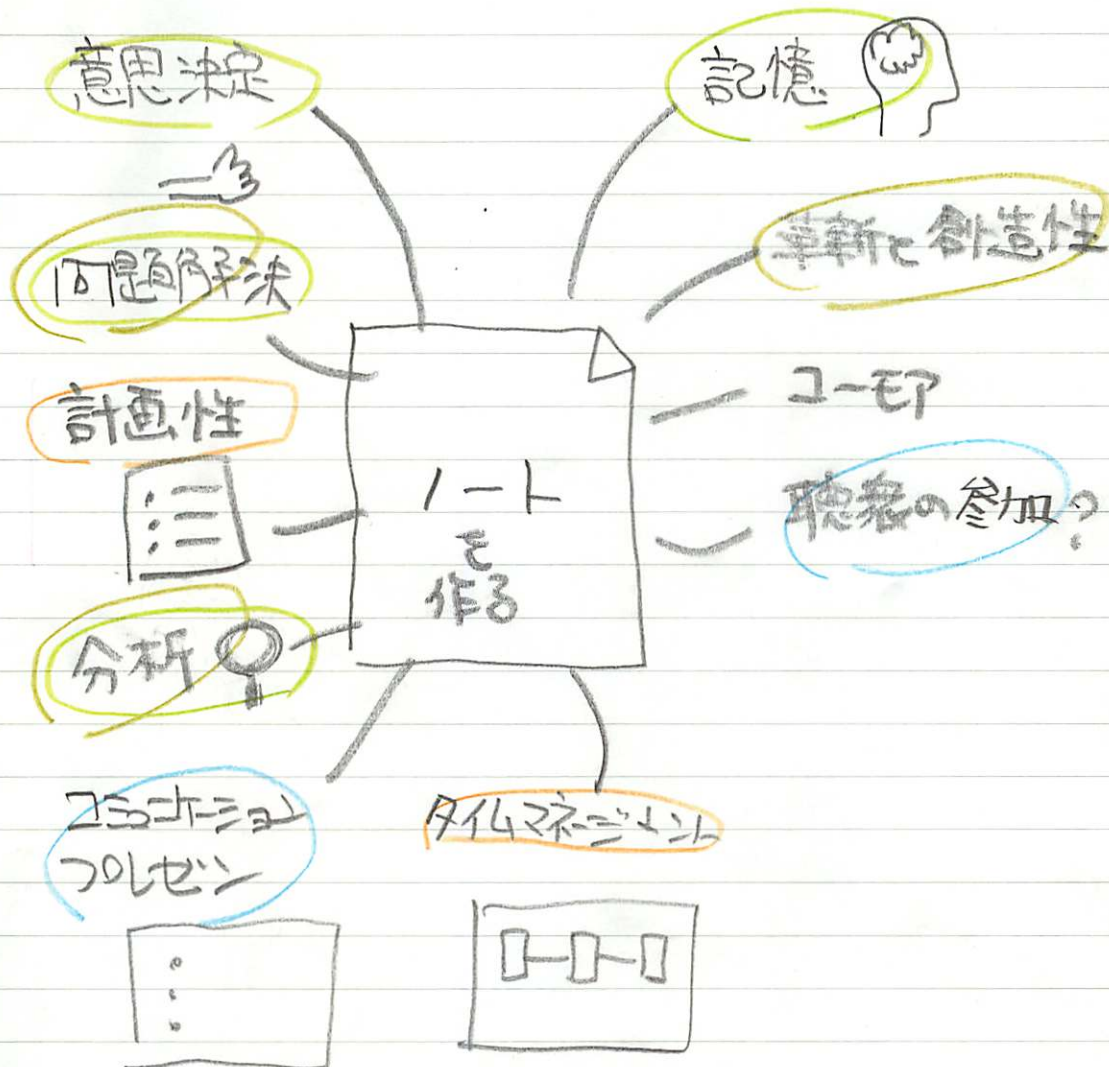 意思決定
記憶
問題解決
革新と創造性
計画性
ユーモア
ノート
を
作る
聴衆の参加?
分析
コミュニケーション
プレゼン
タイムマネージメント